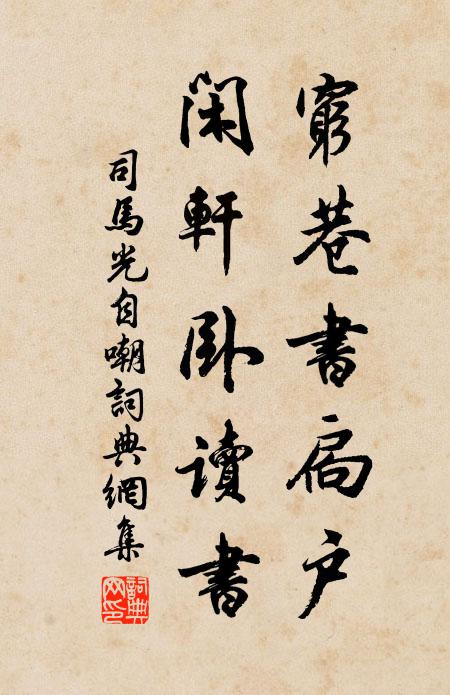 窮巷書扃户
閑軒卧讀書
司馬光自嘲詞典網集
詞典網印